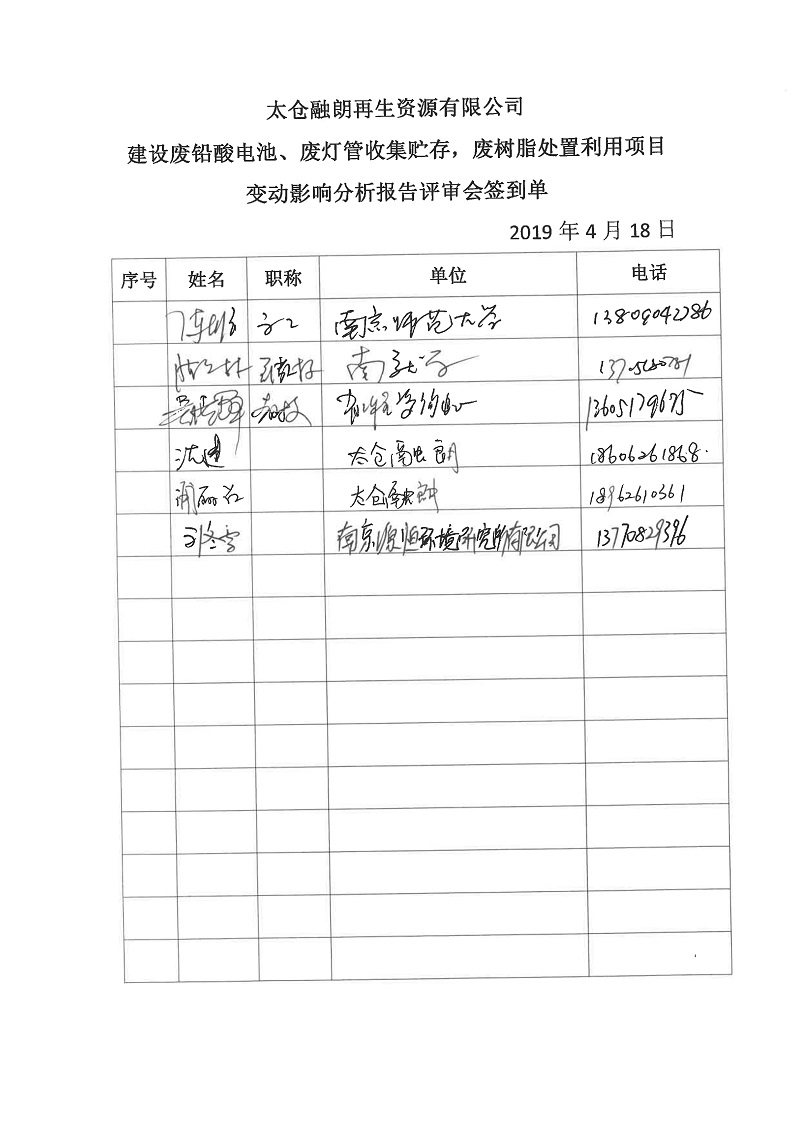 太仓融朗再生资源有限公司
建设废铅酸电池、废灯管收集贮存，废树脂处置利用项目
变动影响分析报告评审会签到单
2019 年 4 月 18 日
序号 姓名 职称 单位 电话
高工 南京师范大学 13809042786
南京大学
13605179675
沈建 太仓融朗 18606261868.
太仓融朗 18962610361
刘冬雪 南京源恒环境研究所有限公司 13770829396